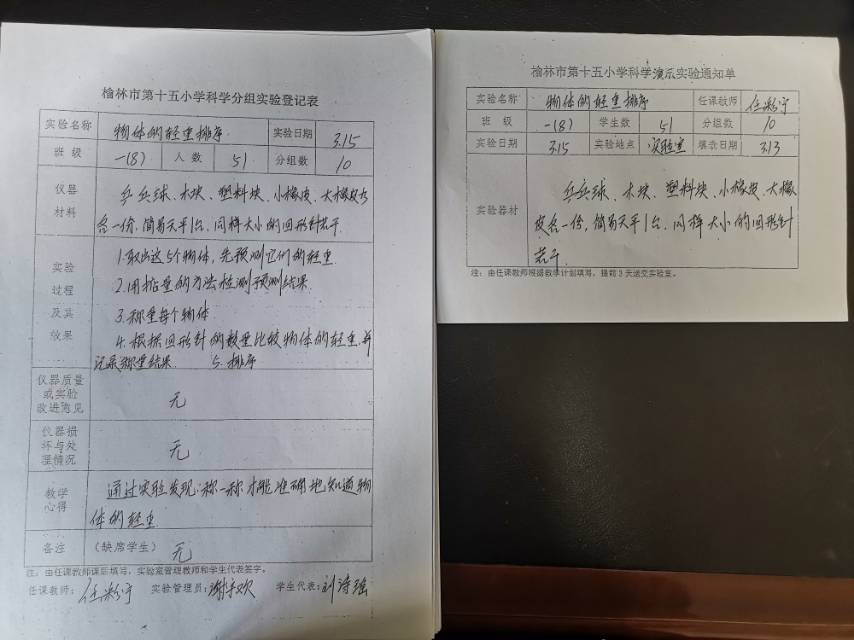 榆林市第十五小学科学分组实验登记表
实验名称 物体的轻重排序 实验日期 3.15
班 级 一(8) 人 数 51 分组数 10
仪器
材料
乒乓球、木块、塑料块、小橡皮、大橡皮
各一份、简易天平1台、同样大小的回形针若干
实验
过程
及其
效果
1.取出这5个物体,先预测它们的轻重
2.用掂量的方法检测预测结果
3.称重每个物体
4.根据回形针的数量比较物体的轻重,并
记录称重结果 5.排序
仪器质量
或实验
改进意见
无
仪器损
坏与处
理情况
无
教学
心得
通过实验发现:称一称才能准确地知道物
体的轻重
备注 (缺席学生) 无
注:由任课教师课后填写,实验室管理教师和学生代表签字。
任课教师: 任彩宁 实验管理员: 学生代表:刘诗瑶
榆林市第十五小学科学演示实验通知单
实验名称 物体的轻重排序 任课教师 任彩宁
班 级 一(8) 学生数 51 分组数 10
实验日期 3.15 实验地点 实验室 填表日期 3.13
实验器材
乒乓球、木块、塑料块、小橡皮、大橡
皮各一份,简易天平1台、同样大小的回形针
若干
注:由任课教师根据教学计划填写,提前3天送交实验室。